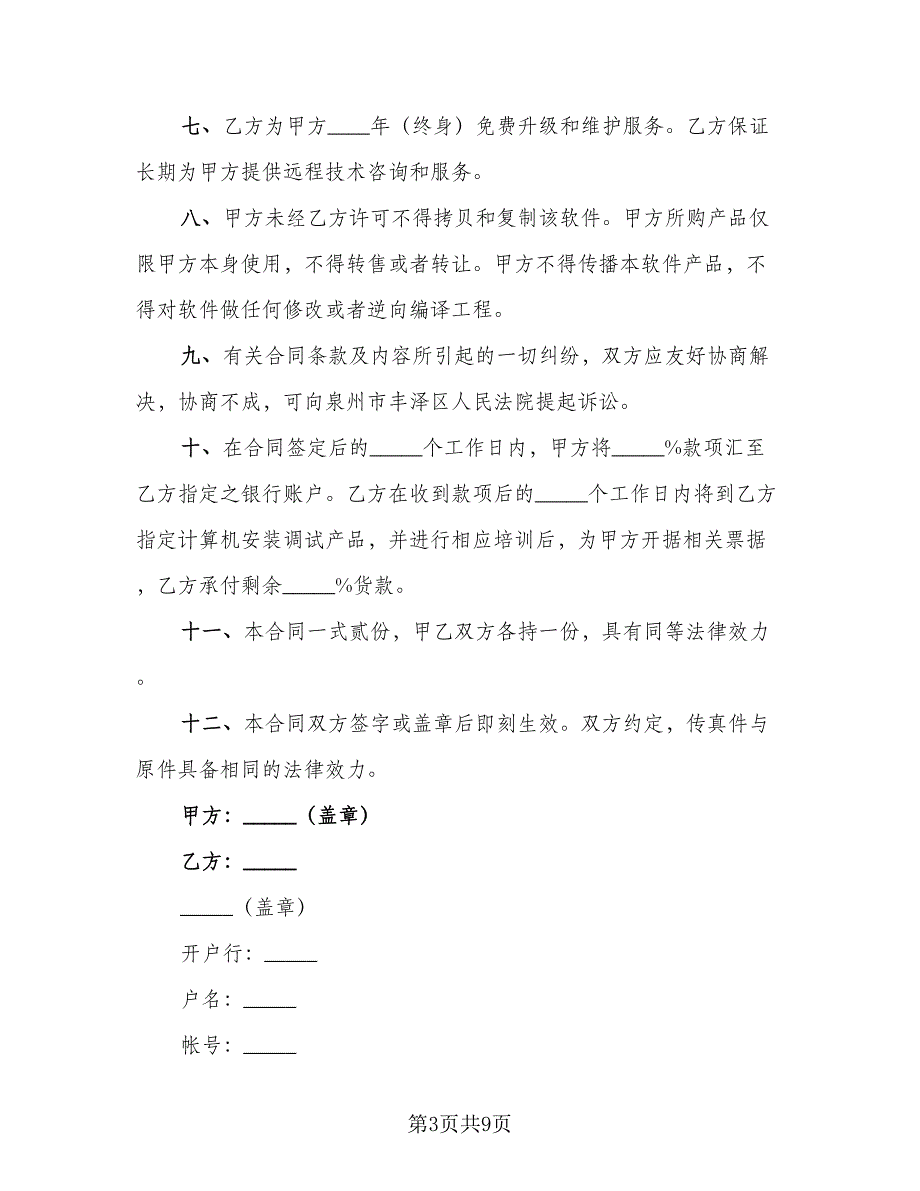 七、乙方为甲方____年（终身）免费升级和维护服务。乙方保证
长期为甲方提供远程技术咨询和服务。
八、甲方未经乙方许可不得拷贝和复制该软件。甲方所购产品仅
限甲方本身使用，不得转售或者转让。甲方不得传播本软件产品，不
得对软件做任何修改或者逆向编译工程。
九、有关合同条款及内容所引起的一切纠纷，双方应友好协商解
决，协商不成，可向泉州市丰泽区人民法院提起诉讼。
十、在合同签定后的_____个工作日内，甲方将_____%款项汇至
乙方指定之银行账户。乙方在收到款项后的_____个工作日内将到乙方
指定计算机安装调试产品，并进行相应培训后，为甲方开据相关票据
，乙方承付剩余_____%货款。
十一、本合同一式贰份，甲乙双方各持一份，具有同等法律效力
。
十二、本合同双方签字或盖章后即刻生效。双方约定，传真件与
原件具备相同的法律效力。
甲方：_____（盖章）
乙方：_____
_____（盖章）
开户行：_____
户名：_____
帐号：_____
第3页共9页